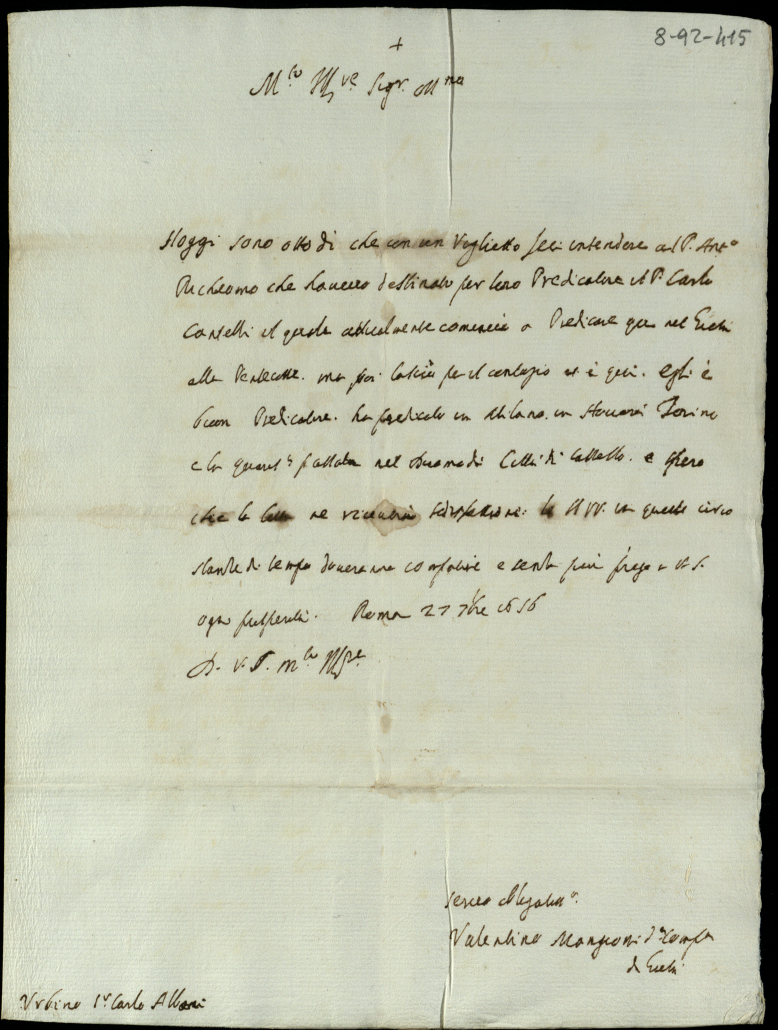 8-92-415
+
M.to Ill.re Sig.r
Hoggi sono otto di che con un Viglietto feci intendere al P. Ant.o
Richeomo che havevo destinato per loro Predicatore il P. Carlo
Cantelli il quale attualmente cominciò a Predicare qua nel Giesù
alla Pentecoste. ma poi lasciò per il contagio et è qui. egli è
buon Predicatore. ha predicato in Milano. in Torino
e la quares.a passata nel Duomo di Città di Castello. e spero
che le ne riceveranno satisfattione: le VV. in queste circo
stanze di tempo doveranno compatire e senza più prego a V.S.
ogni prosperità. Roma 27 7bre 1656
D. V. S. M.to Ill.re
Servo Obligatiss.o
Valentino Mangioni d.a Comp.a
di Giesù
Urbino S.r Carlo Albani